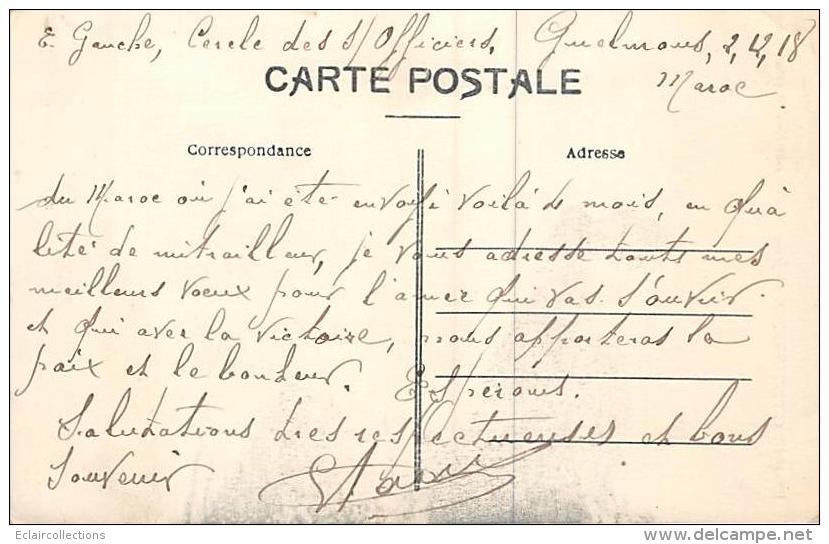 E. Gauche, Cercle des s/Officiers, Guelmous, 2, 12, 18
Maroc
CARTE POSTALE
Correspondance
Adresse
du Maroc où j'ai été envoyé voilà ds mois, en qua
lité de mitrailleur, je vous adresse touts mes
meilleurs voeux pour l'anner qui vas s'ouvrir.
et qui avec la victoire, nous apporteras la
paix et le bonheur. Espérons.
Salutations très respectueuses et bons
souvenir
Eclaircollections
delcampe.net